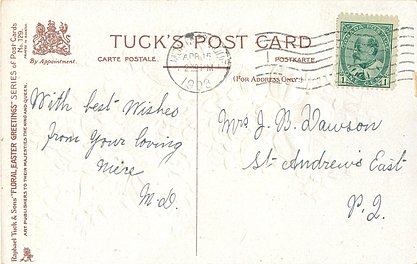 TUCK'S POST CARD
CARTE POSTALE.
POSTKARTE.
(For Address Only.)
By Appointment.
Raphael Tuck & Sons' "FLORAL EASTER GREETINGS" SERIES of Post Cards
ART PUBLISHERS TO THEIR MAJESTIES THE KING AND QUEEN.
APR 15
PM
With best Wishes
from your loving
M.D.
Mrs J. B. Dawson
St Andrews East
P.Q.
1
1